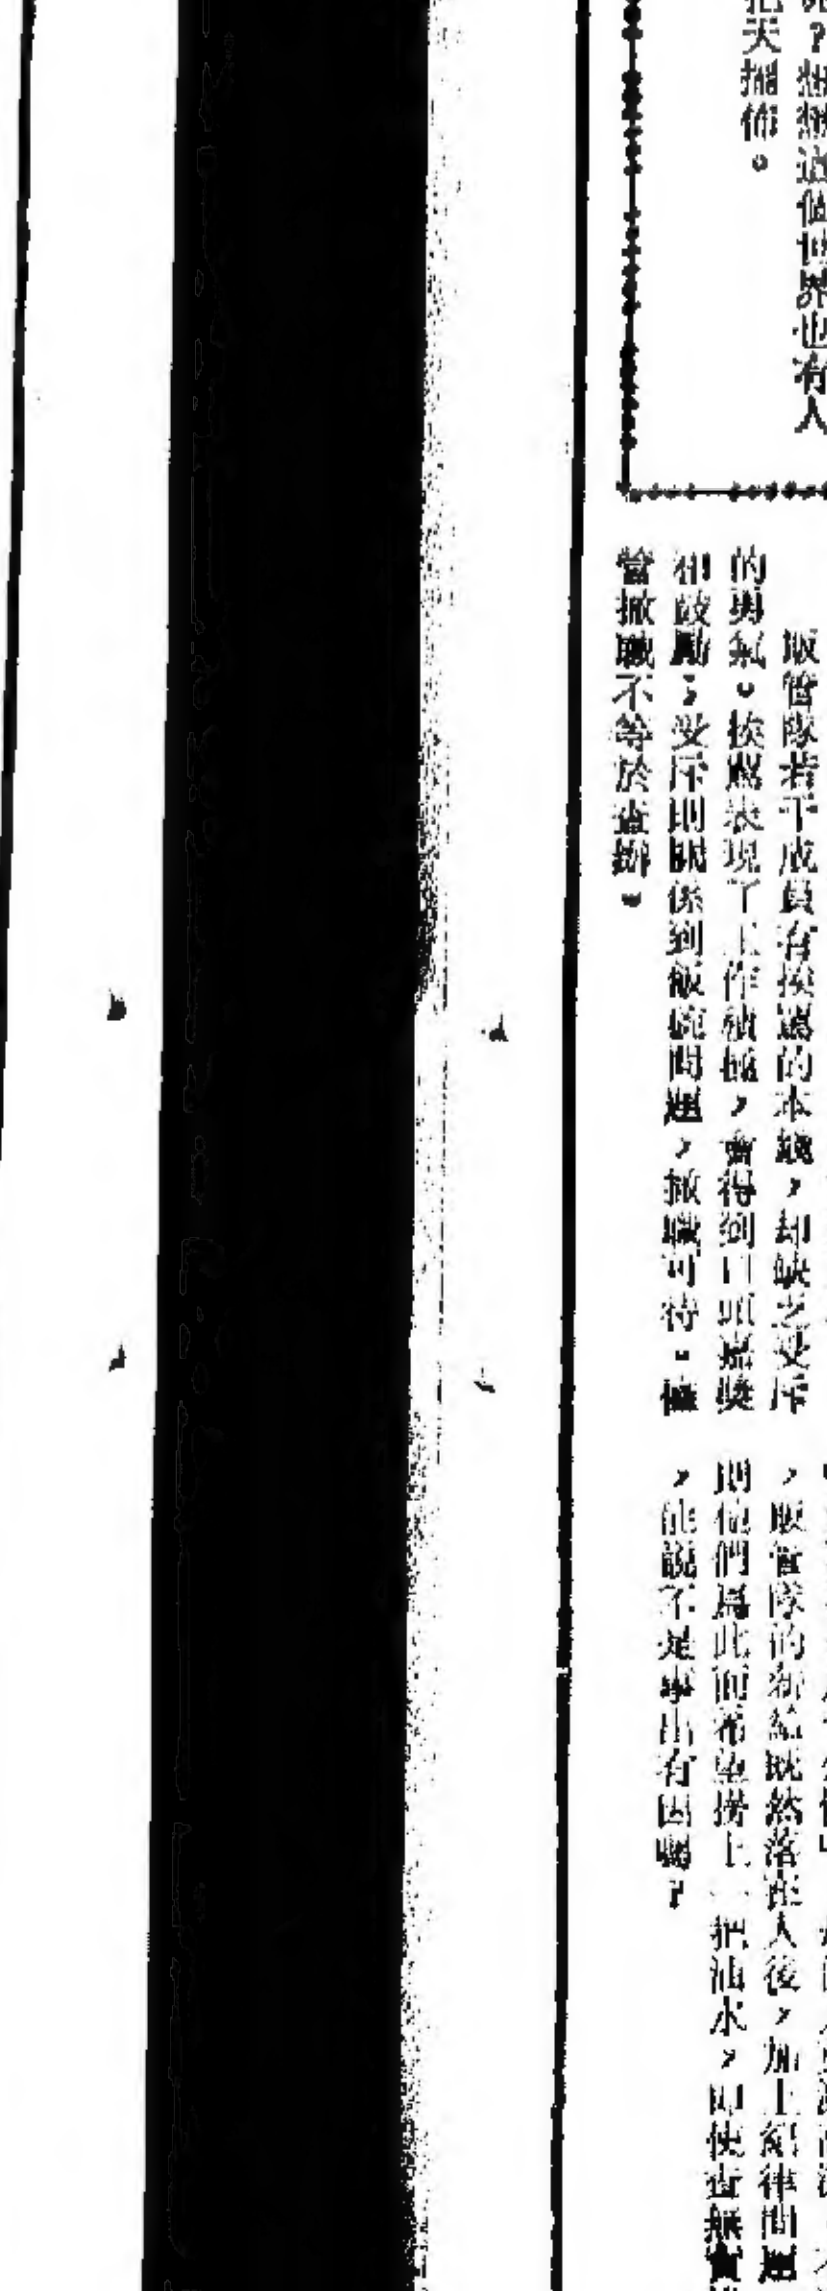 ？想想這個世界也有人
把天擺佈。
販管隊若干成員有挨罵的本領，却缺乏受斥
的勇氣。挨罵表現了工作積極，會得到口頭嘉獎
和鼓勵；受斥則關係到飯碗問題，撤職可待。僅
管撤職不等於查辦。
，販管隊的薪給既然落在人後，加上紀律問題
則他們爲此而希望撈上一把油水，即使查無實
，能說不是事出有因嗎？